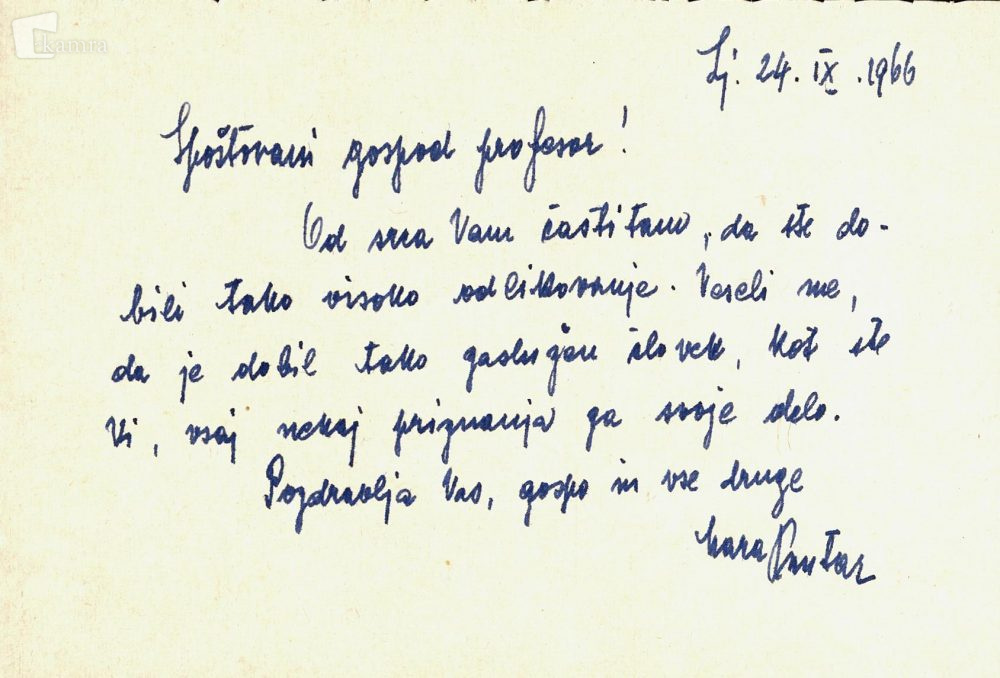 kamra
Lj. 24. IX. 1966
Spoštovani gospod profesor!
Od srca Vam častitam, da ste do-
bili tako visoko odlikovanje. Veseli me,
da je dobil tako zaslužen človek, kot ste
Vi, vsaj nekaj priznanja za svoje delo.
Pozdravlja Vas, gospo in vse druge
Mara